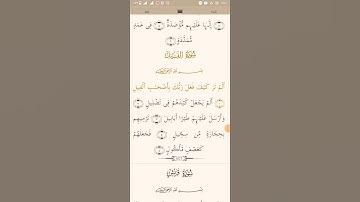 إِنَّهَا عَلَيْهِم مُّؤْصَدَةٌ ۝ فِى عَمَدٍ
مُّمَدَّدَةٍ ۝
سُورَةُ الفِيلِ
بِسْمِ ٱللَّهِ ٱلرَّحْمَٰنِ ٱلرَّحِيمِ
أَلَمْ تَرَ كَيْفَ فَعَلَ رَبُّكَ بِأَصْحَٰبِ ٱلْفِيلِ
۝ أَلَمْ يَجْعَلْ كَيْدَهُمْ فِى تَضْلِيلٍ ۝
وَأَرْسَلَ عَلَيْهِمْ طَيْرًا أَبَابِيلَ ۝ تَرْمِيهِم
بِحِجَارَةٍ مِّن سِجِّيلٍ ۝ فَجَعَلَهُمْ
كَعَصْفٍ مَّأْكُولٍۭ ۝
سُورَةُ قُرَيْشٍ
بِسْمِ ٱللَّهِ ٱلرَّحْمَٰنِ ٱلرَّحِيمِ